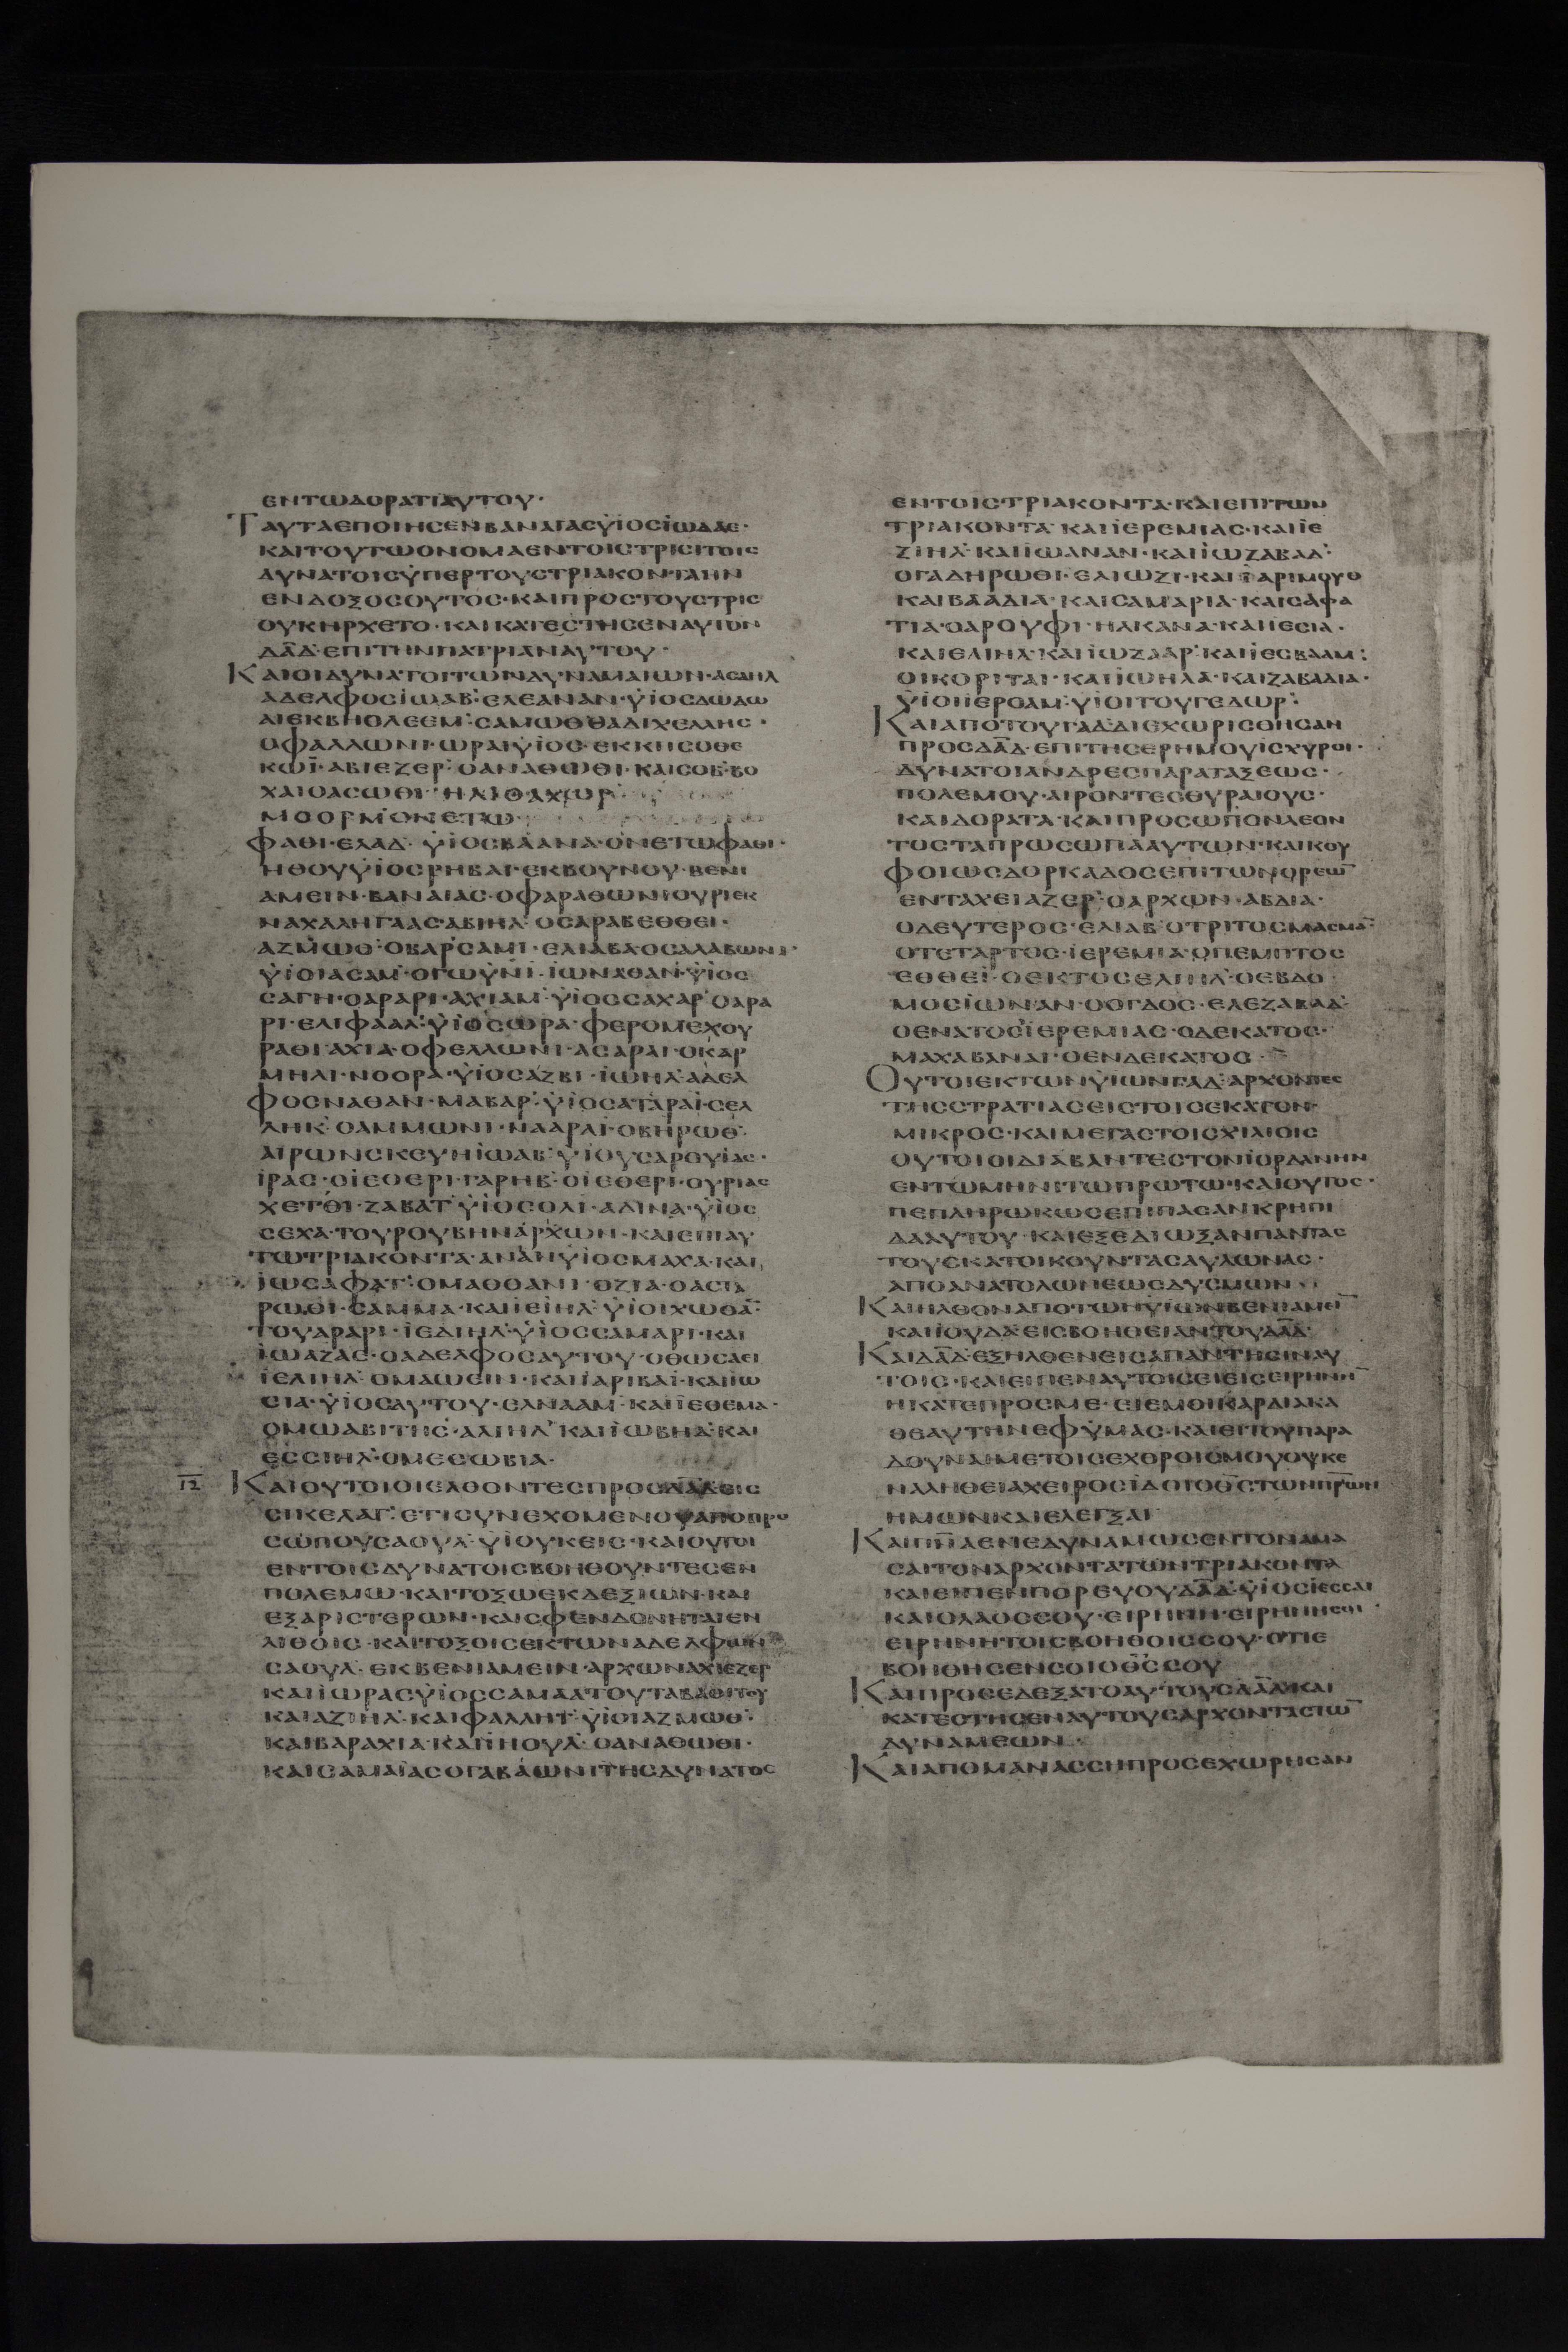 ΕΝΤΩΔΟΡΑΤΙΑΥΤΟΥ·
ΤΑΥΤΑΕΠΟΙΗΣΕΝΒΑΝΑΙΑΣΫΙΟΣΪΩΔΑΕ·
ΚΑΙΤΟΥΤΩΟΝΟΜΑΕΝΤΟΙΣΤΡΙΣΙΤΟΙΣ
ΔΥΝΑΤΟΙΣΫΠΕΡΤΟΥΣΤΡΙΑΚΟΝΤΑΗΝ
ΕΝΔΟΞΟΣΟΥΤΟΣ·ΚΑΙΠΡΟΣΤΟΥΣΤΡΙΣ
ΟΥΚΗΡΧΕΤΟ·ΚΑΙΚΑΤΕΣΤΗΣΕΝΑΥΤΟΝ
ΔΑ̅Δ·ΕΠΙΤΗΝΠΑΤΡΙΑΝΑΥΤΟΥ·
ΚΑΙΟΙΔΥΝΑΤΟΙΤΩΝΔΥΝΑΜΑΙΩΝ·ΑΣΑΗΛ
ΑΔΕΛΦΟΣΪΩΑΒ·ΕΛΕΑΝΑΝ·ΫΙΟΣΔΩΔΩ
ΑΙΕΚΒΗΘΛΕΕΜ·ΣΑΜΩΘΘΑΔΙΧΕΛΛΗΣ·
ΟΦΑΛΛΩΝΙ·ΩΡΑΙΫΙΟΣ·ΕΚΚΗΣΟΘΕ
ΚΩΪ·ΑΒΙΕΖΕΡ·ΟΑΝΑΘΩΘΙ·ΚΑΙΣΟΒΒΟ
ΧΑΙΟΑΣΩΘΙ·ΗΛΙΘΑΧΩΡ
ΜΟΟΡΜΟΝΕΤΩ
ΦΑΘΙ·ΕΛΑΔ·ΫΙΟΣΒΑΑΝΑ·ΟΝΕΤΩΦΑΘΙ·
ΗΘΟΥΫΙΟΣΡΗΒΑΙ·ΕΚΒΟΥΝΟΥ·ΒΕΝΙ
ΑΜΕΙΝ·ΒΑΝΑΙΑΣ·ΟΦΑΡΑΘΩΝΙΟΥΡΙΕΚ
ΝΑΧΑΛΗΓΑΑΣ·ΑΒΙΗΛ·ΟΣΑΡΑΒΕΘΘΕΙ·
ΑΖΜΩΘ·ΟΒΑΡΣΑΜΙ·ΕΛΙΑΒΑ·ΟΣΑΛΑΒΩΝΙ·
ΫΙΟΙΑΣΑΜ·ΟΓΩΫΝΙ·ΪΩΝΑΘΑΝ·ΫΙΟΣ
ΣΑΓΗ·ΟΑΡΑΡΙ·ΑΧΙΑΜ·ΫΙΟΣΣΑΧΑΡ·ΟΑΡΑ
ΡΙ·ΕΛΙΦΑΑΛ·ΫΙΟΣΩΡΑ·ΦΕΡΟΜΕΧΟΥ
ΡΑΘΙ·ΑΧΙΑ·ΟΦΕΛΛΩΝΙ·ΑΣΑΡΑΙ·ΟΚΑΡ
ΜΗΛΙ·ΝΟΟΡΑ·ΫΙΟΣΑΖΒΙ·ΪΩΗΛ·ΑΔΕΛ
ΦΟΣΝΑΘΑΝ·ΜΑΒΑΡ·ΫΙΟΣΑΤΑΡΑΙ·ΣΕΛ
ΛΗΚ·ΟΑΜΜΩΝΙ·ΝΑΑΡΑΙ·ΟΒΗΡΩΘ·
ΑΙΡΩΝΣΚΕΥΗΪΩΑΒ·ΫΙΟΥΣΑΡΟΥΙΑΣ·
ΪΡΑΣ·ΟΪΣΘΕΡΙ·ΓΑΡΗΒ·ΟΪΣΘΕΡΙ·ΟΥΡΙΑΣ
ΧΕΤΘΙ·ΖΑΒΑΤ·ΫΙΟΣΟΛΙ·ΑΔΙΝΑ·ΫΙΟΣ
ΣΕΧΑ·ΤΟΥΡΟΥΒΗΝΑΡΧΩΝ·ΚΑΙΕΠΑΥ
ΤΩΤΡΙΑΚΟΝΤΑ·ΑΝΑΝΫΙΟΣΜΑΧΑ·ΚΑΙ
ΪΩΣΑΦΑΤ·ΟΜΑΘΘΑΝΙ·ΟΖΙΑ·ΟΑΣΤΑ
ΡΩΘΙ·ΣΑΜΜΑ·ΚΑΙΪΕΙΗΛ·ΫΙΟΙΧΩΘΑ̅·
ΤΟΥΑΡΑΡΙ·ΪΕΔΙΗΛ·ΫΙΟΣΣΑΜΑΡΙ·ΚΑΙ
ΪΩΑΖΑΕ·ΟΑΔΕΛΦΟΣΑΥΤΟΥ·ΟΘΩΣΑΕΙ
ΪΕΛΙΗΛ·ΟΜΑΩΕΙΝ·ΚΑΙΪΑΡΙΒΑΙ·ΚΑΙΪΩ
ΣΙΑ·ΫΙΟΣΑΥΤΟΥ·ΕΛΝΑΑΜ·ΚΑΙΪΕΘΕΜΑ·
ΟΜΩΑΒΙΤΗΣ·ΑΛΙΗΛ·ΚΑΙΪΩΒΗΔ·ΚΑΙ
ΕΣΣΙΗΛ·ΟΜΕΣΩΒΙΑ·
ΙΖ
ΚΑΙΟΥΤΟΙΟΙΕΛΘΟΝΤΕΣΠΡΟΣΔΑ̅ΔΕΙΣ
ΣΙΚΕΛΑΓ·ΕΤΙΣΥΝΕΧΟΜΕΝΟΥΑΠΟΠΡΟ
ΣΩΠΟΥΣΑΟΥΛ·ΫΙΟΥΚΕΙΣ·ΚΑΙΟΥΤΟΙ
ΕΝΤΟΙΣΔΥΝΑΤΟΙΣΒΟΗΘΟΥΝΤΕΣΕΝ
ΠΟΛΕΜΩ·ΚΑΙΤΟΞΩΕΚΔΕΞΙΩΝ·ΚΑΙ
ΕΞΑΡΙΣΤΕΡΩΝ·ΚΑΙΣΦΕΝΔΟΝΗΤΑΙΕΝ
ΛΙΘΟΙΣ·ΚΑΙΤΟΞΟΙΣΕΚΤΩΝΑΔΕΛΦΩΝ
ΣΑΟΥΛ·ΕΚΒΕΝΙΑΜΕΙΝ·ΑΡΧΩΝΑΧΙΕΖΕΡ
ΚΑΙΪΩΡΑΣΫΙΟΣΣΑΜΑΑΤΟΥΓΑΒΑΘΙΤΟΥ
ΚΑΙΑΖΙΗΛ·ΚΑΙΦΑΛΛΗΤ·ΫΙΟΙΑΖΜΩΘ·
ΚΑΙΒΑΡΑΧΙΑ·ΚΑΙΪΗΟΥΛ·ΟΑΝΑΘΩΘΙ·
ΚΑΙΣΑΜΑΪΑΣΟΓΑΒΑΩΝΙΤΗΣΔΥΝΑΤΟΣ
ΕΝΤΟΙΣΤΡΙΑΚΟΝΤΑ·ΚΑΙΕΠΙΤΩΝ
ΤΡΙΑΚΟΝΤΑ·ΚΑΙΪΕΡΕΜΙΑΣ·ΚΑΙΪΕ
ΖΙΗΛ·ΚΑΙΪΩΑΝΑΝ·ΚΑΙΪΩΖΑΒΑΔ·
ΟΓΑΔΗΡΩΘΙ·ΕΛΙΩΖΙ·ΚΑΙΪΑΡΙΜΟΥΘ
ΚΑΙΒΑΑΔΙΑ·ΚΑΙΣΑΜΑΡΙΑ·ΚΑΙΣΑΦΑ
ΤΙΑ·ΟΑΡΟΥΦΙ·ΗΛΚΑΝΑ·ΚΑΙΪΕΣΙΑ·
ΚΑΙΕΛΙΗΛ·ΚΑΙΪΩΖΑΑΡ·ΚΑΙΪΕΣΒΑΑΜ:
ΟΙΚΟΡΙΤΑΙ·ΚΑΙΪΩΗΛΑ·ΚΑΙΖΑΒΑΔΙΑ·
ΫΙΟΙΪΕΡΟΑΜ·ΫΙΟΙΤΟΥΓΕΔΩΡ·
ΚΑΙΑΠΟΤΟΥΓΑΔ·ΔΙΕΧΩΡΙΣΘΗΣΑΝ
ΠΡΟΣΔΑ̅Δ·ΕΠΙΤΗΣΕΡΗΜΟΥΙΣΧΥΡΟΙ·
ΔΥΝΑΤΟΙΑΝΔΡΕΣΠΑΡΑΤΑΞΕΩΣ·
ΠΟΛΕΜΟΥ·ΑΙΡΟΝΤΕΣΘΥΡΑΙΟΥΣ·
ΚΑΙΔΟΡΑΤΑ·ΚΑΙΠΡΟΣΩΠΟΝΛΕΟΝ
ΤΟΣΤΑΠΡΩΣΩΠΑΑΥΤΩΝ·ΚΑΙΚΟΥ
ΦΟΙΩΣΔΟΡΚΑΔΟΣΕΠΙΤΩΝΟΡΕΩ̅
ΕΝΤΑΧΕΙΑΖΕΡ·ΟΑΡΧΩΝ·ΑΒΔΙΑ·
ΟΔΕΥΤΕΡΟΣ·ΕΛΙΑΒ·ΟΤΡΙΤΟΣΜΑΣΜΑ̅
ΟΤΕΤΑΡΤΟΣ·ΪΕΡΕΜΙΑ·ΟΠΕΜΠΤΟΣ
ΕΘΘΕΙ·ΟΕΚΤΟΣΕΛΙΗΛ·ΟΕΒΔΟ
ΜΟΣΪΩΝΑΝ·ΟΟΓΔΟΣ·ΕΛΕΖΑΒΑΔ·
ΟΕΝΑΤΟΣΪΕΡΕΜΙΑΣ·ΟΔΕΚΑΤΟΣ·
ΜΑΧΑΒΑΝΑΙ·ΟΕΝΔΕΚΑΤΟΣ
ΟΥΤΟΙΕΚΤΩΝΫΙΩΝΓΑΔ·ΑΡΧΟΝΤΕΣ
ΤΗΣΣΤΡΑΤΙΑΣΕΙΣΤΟΙΣΕΚΑΤΟΝ
ΜΙΚΡΟΣ·ΚΑΙΜΕΓΑΣΤΟΙΣΧΙΛΙΟΙΣ
ΟΥΤΟΙΟΙΔΙΑΒΑΝΤΕΣΤΟΝΪΟΡΔΑΝΗΝ
ΕΝΤΩΜΗΝΙΤΩΠΡΩΤΩ·ΚΑΙΟΥΤΟΣ·
ΠΕΠΛΗΡΩΚΩΣΕΠΙΠΑΣΑΝΚΡΗΠΙ
ΔΑΑΥΤΟΥ·ΚΑΙΕΞΕΔΙΩΞΑΝΠΑΝΤΑΣ
ΤΟΥΣΚΑΤΟΙΚΟΥΝΤΑΣΑΥΛΩΝΑΣ·
ΑΠΟΑΝΑΤΟΛΩΝΕΩΣΔΥΣΜΩΝ
ΚΑΙΗΛΘΟΝΑΠΟΤΩΝΫΙΩΝΒΕΝΙΑΜΕΙ̅
ΚΑΙΪΟΥΔΑ·ΕΙΣΒΟΗΘΕΙΑΝΤΟΥΔΑ̅Δ·
ΚΑΙΔΑ̅Δ·ΕΞΗΛΘΕΝΕΙΣΑΠΑΝΤΗΣΙΝΑΥ
ΤΟΙΣ·ΚΑΙΕΙΠΕΝΑΥΤΟΙΣΕΙΕΙΣΕΙΡΗΝΗ̅
ΗΚΑΤΕΠΡΟΣΜΕ·ΕΙΕΜΟΙΚΑΡΔΙΑΚΑ
ΘΕΑΥΤΗΝΕΦΫΜΑΣ·ΚΑΙΕΙΤΟΥΠΑΡΑ
ΔΟΥΝΑΙΜΕΤΟΙΣΕΧΘΡΟΙΣΜΟΥΟΥΚΕ
ΝΑΛΗΘΕΙΑΧΕΙΡΟΣΪΔΟΙΟΘ̅ΣΤΩΝΠ̅ΡΩΝ
ΗΜΩΝΚΑΙΕΛΕΓΞΑΙ
ΚΑΙΠ̅Ν̅ΑΕΝΕΔΥΝΑΜΩΣΕΝΤΟΝΑΜΑ
ΣΑΙΤΟΝΑΡΧΟΝΤΑΤΩΝΤΡΙΑΚΟΝΤΑ
ΚΑΙΕΙΠΕΝΠΟΡΕΥΟΥΔΑ̅Δ·ΫΙΟΣΪΕΣΣΑΙ
ΚΑΙΟΛΑΟΣΣΟΥ·ΕΙΡΗΝΗ·ΕΙΡΗΝΗΣΟΙ·
ΕΙΡΗΝΗΤΟΙΣΒΟΗΘΟΙΣΣΟΥ·ΟΤΙΕ
ΒΟΗΘΗΣΕΝΣΟΙΟΘ̅ΣΣΟΥ
ΚΑΙΠΡΟΣΕΔΕΞΑΤΟΑΥΤΟΥΣΔΑ̅Δ·ΚΑΙ
ΚΑΤΕΣΤΗΣΕΝΑΥΤΟΥΣΑΡΧΟΝΤΑΣΤΩ̅
ΔΥΝΑΜΕΩΝ·
ΚΑΙΑΠΟΜΑΝΑΣΣΗΠΡΟΣΕΧΩΡΗΣΑΝ